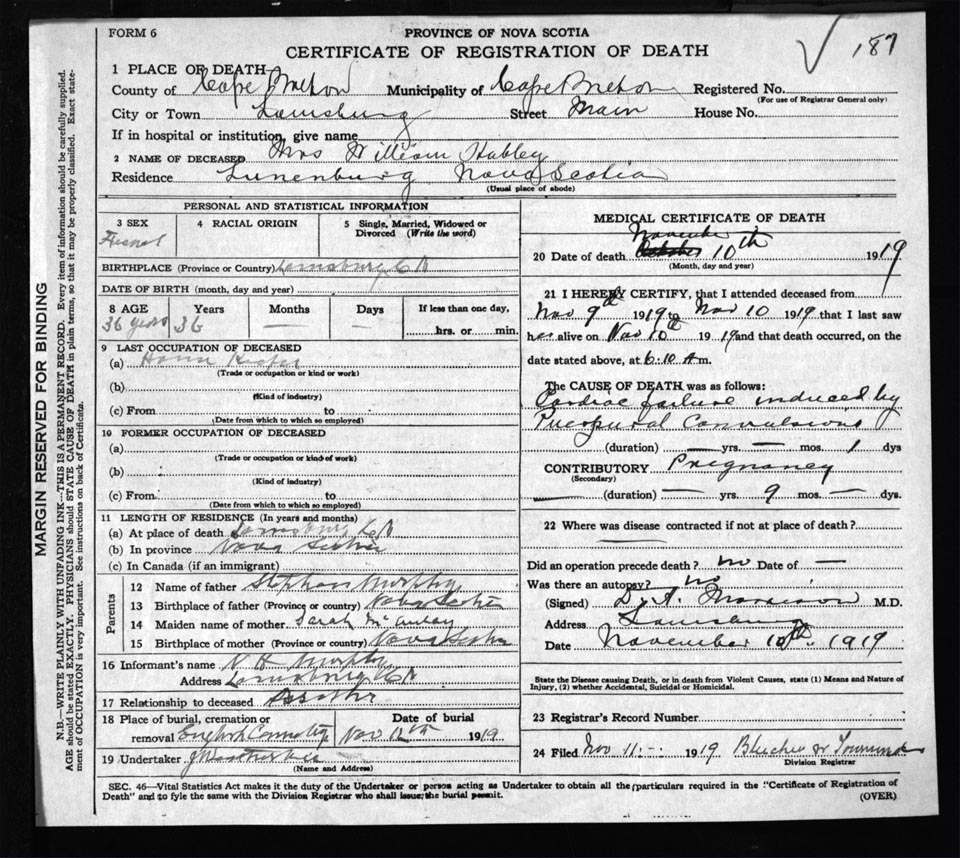 FORM 6
PROVINCE OF NOVA SCOTIA
CERTIFICATE OF REGISTRATION OF DEATH
187
MARGIN RESERVED FOR BINDING
N.B.—WRITE PLAINLY WITH UNFADING INK—THIS IS A PERMANENT RECORD. Every item of information should be carefully supplied.
AGE should be stated EXACTLY. PHYSICIANS should STATE CAUSE OF DEATH in plain terms, so that it may be properly classified. Exact state-
ment of OCCUPATION is very important. See instructions on back of Certificate.
1 PLACE OF DEATH
County of Cape Breton Municipality of Cape Breton Registered No.
(For use of Registrar General only)
City or Town Louisburg Street Main House No.
If in hospital or institution, give name
2 NAME OF DECEASED Mrs William Hubley
Residence Lunenburg Nova Scotia
(Usual place of abode)
PERSONAL AND STATISTICAL INFORMATION
3 SEX 4 RACIAL ORIGIN 5 Single, Married, Widowed or
Divorced (Write the word)
BIRTHPLACE (Province or Country) Louisburg C B
DATE OF BIRTH (month, day and year)
8 AGE Years Months Days If less than one day,
36 years 36 — — hrs. or min.
9 LAST OCCUPATION OF DECEASED
(a) House Keeper
(Trade or occupation or kind or work)
(b)
(Kind of industry)
(c) From to
(Date from which to which so employed)
10 FORMER OCCUPATION OF DECEASED
(a)
(Trade or occupation or kind of work)
(b)
(Kind of industry)
(c) From to
(Date from which to which so employed)
11 LENGTH OF RESIDENCE (In years and months)
(a) At place of death Louisburg C B
(b) In province Nova Scotia
(c) In Canada (if an immigrant)
Parents
12 Name of father Stephen Murphy
13 Birthplace of father (Province or country) Nova Scotia
14 Maiden name of mother Sarah McAulay
15 Birthplace of mother (Province or country) Nova Scotia
16 Informant's name N H Murphy
Address Louisburg C B
17 Relationship to deceased
18 Place of burial, cremation or Date of burial
removal English Nov 12th 1919
19 Undertaker
(Name and Address)
MEDICAL CERTIFICATE OF DEATH
November
20 Date of death October 10th 1919
(Month, day and year)
21 I HEREBY CERTIFY, that I attended deceased from
Nov 9th 1919 to Nov 10 1919 that I last saw
her alive on Nov 10th 1919 and that death occurred, on the
date stated above, at 6:10 A m.
The CAUSE OF DEATH was as follows:
Cardiac failure induced by
Puerperal Convulsions
(duration) — yrs. — mos. 1 dys
CONTRIBUTORY Pregnancy
(Secondary)
— (duration) — yrs. 9 mos. — dys.
22 Where was disease contracted if not at place of death?
Did an operation precede death? no Date of —
Was there an autopsy? no
(Signed) Morrison M.D.
Address Louisburg
Date November 10th 1919
State the Disease causing Death, or in death from Violent Causes, state (1) Means and Nature of
Injury, (2) whether Accidental, Suicidal or Homicidal.
23 Registrar's Record Number
24 Filed Nov 11 1919
Division Registrar
SEC. 46—Vital Statistics Act makes it the duty of the Undertaker or person acting as Undertaker to obtain all the particulars required in the "Certificate of Registration of
Death" and to fyle the same with the Division Registrar who shall issue the burial permit.
(OVER)